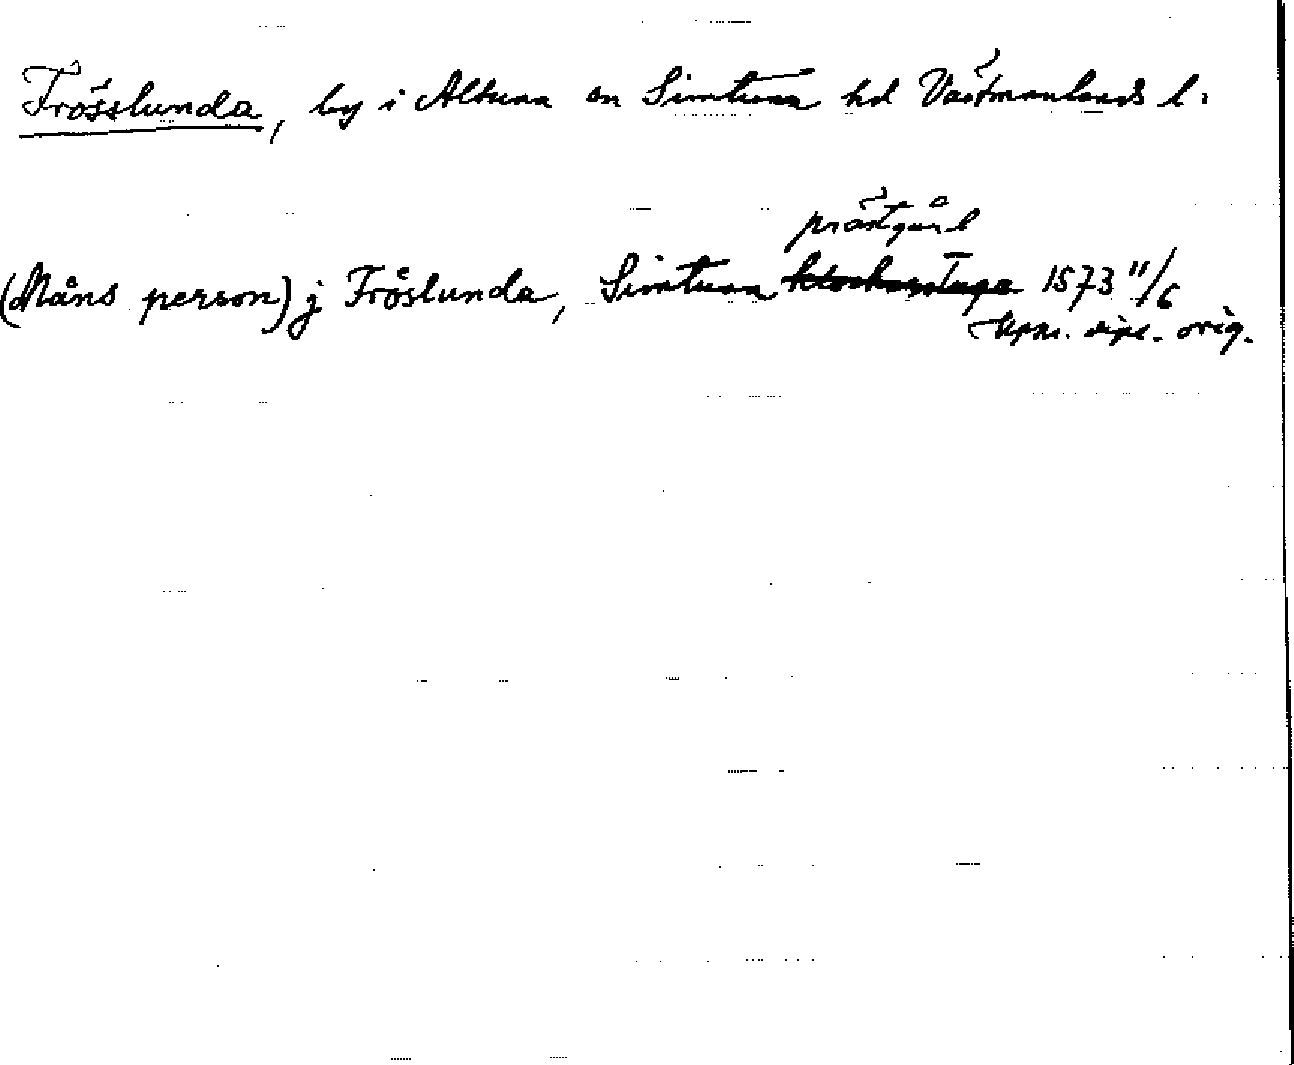 Frösslunda, by i Altuna sn Simtuna hd Västmanlands l.
prästgård
(Måns person) j Fröslunda, Simtuna klockarstuga 1573 11/6
Upps. dipl. orig.